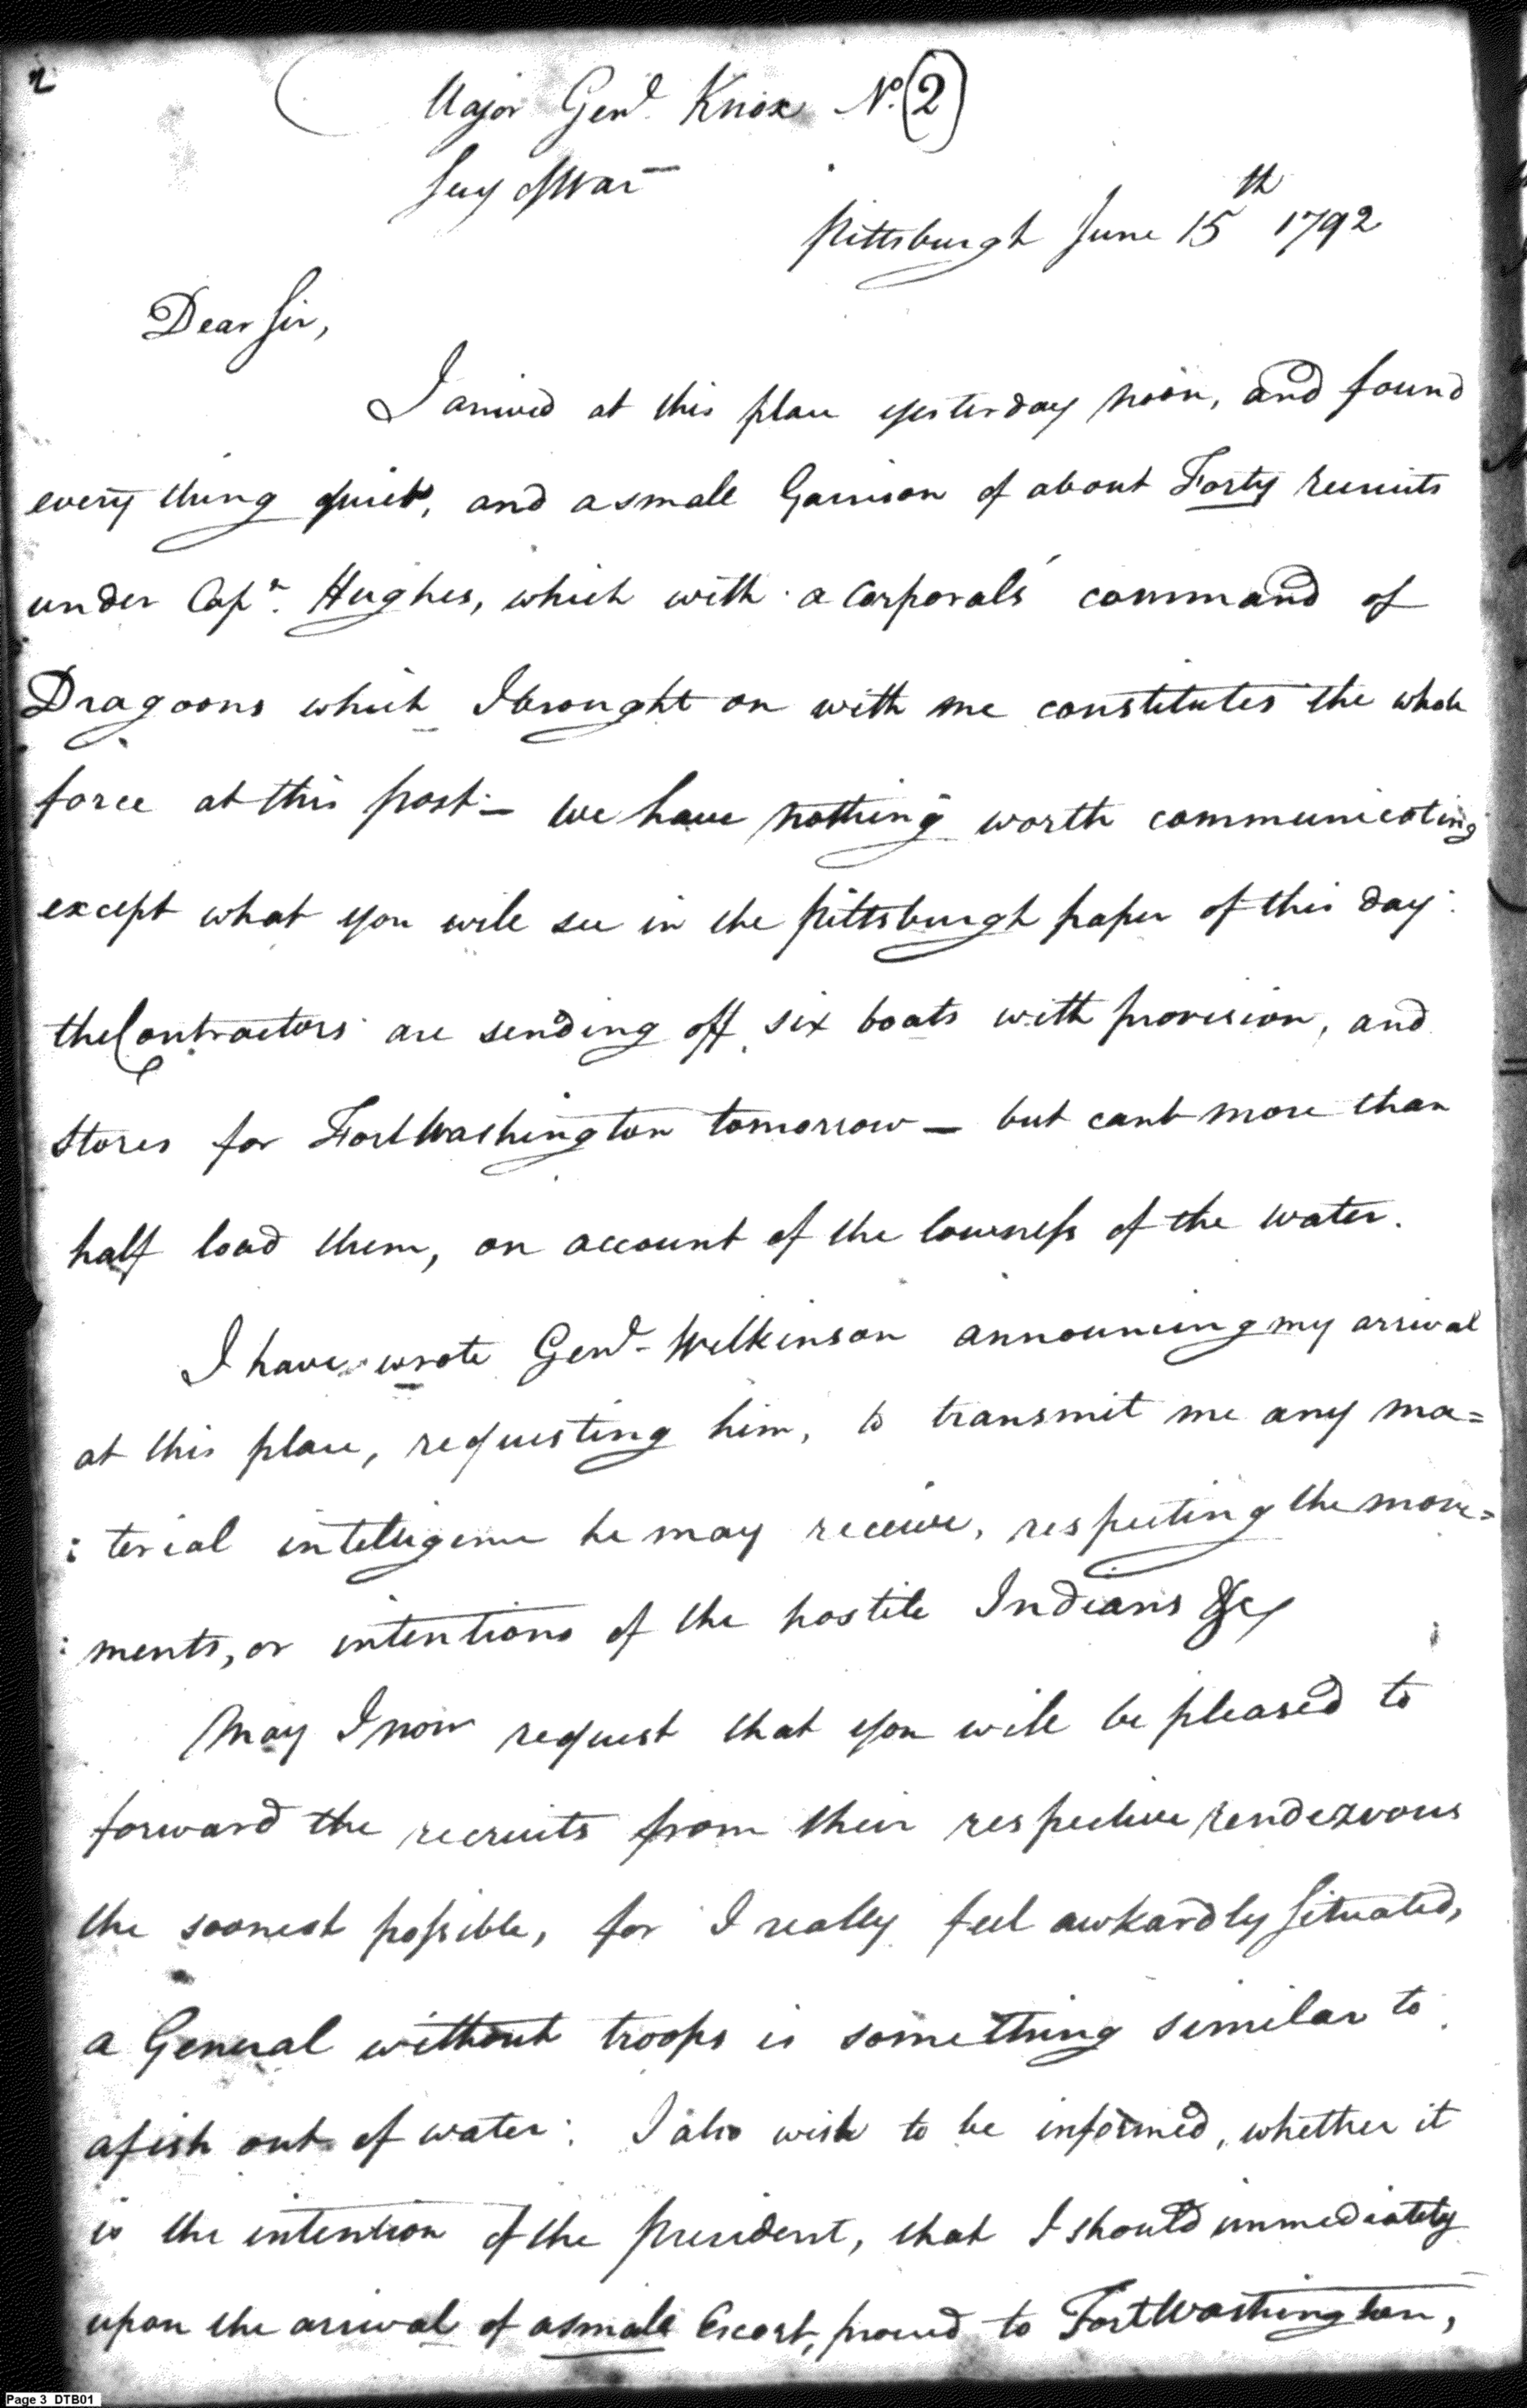 2
Major Genl. Knox No. (2)
Secy of War
Pittsburgh June 15th 1792
Dear Sir,
I arived at this place yesterday noon, and found
every thing quiet, and a small Garrison of about Forty recruits
under Capn. Hughes, which with a Corporals' command of
Dragoons which I brought on with me constitutes the whole
force at this post:— we have nothing worth communicating
except what you will see in the Pittsburgh paper of this day:
the Contractors are sending off six boats with provision, and
Stores for Fort Washington tomorrow — but cant more than
half load them, on account of the lowness of the water.
I have wrote Genl. Wilkinson announcing my arrival
at this place, requesting him, to transmit me any ma=
:terial intelligence he may receive, respecting the move=
:ments, or intentions of the hostile Indians &c
May I now request that you will be pleased to
forward the recruits from their respective rendezvous
the soonest possible, for I really feel awkardly situated,
a General without troops is something similar to
a fish out of water: I also wish to be informed, whether it
is the intention of the President, that I should immediately
upon the arival of a small Escort, proceed to Fort Washington,
Page 3 DTB01